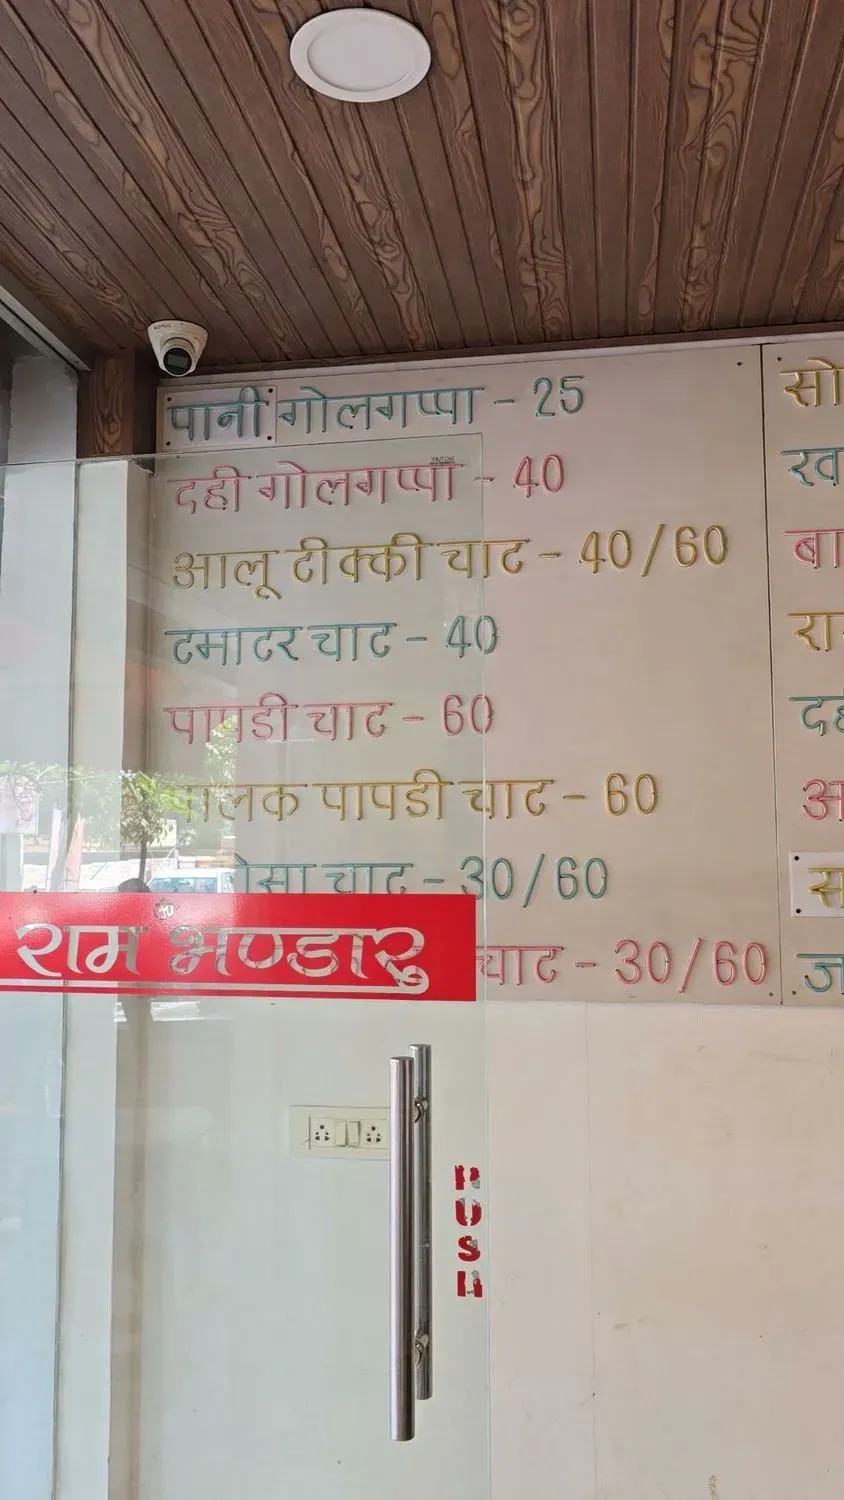 पानी गोलगप्पा - 25
दही गोलगप्पा - 40
आलू टीक्की चाट - 40/60
टमाटर चाट - 40
पापडी चाट - 60
पालक पापडी चाट - 60
चाट - 30/60
चाट - 30/60
राम भण्डार
PUSH